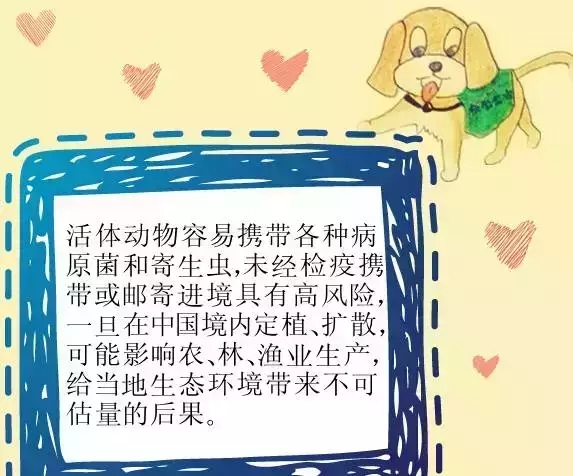 活体动物容易携带各种病
原菌和寄生虫,未经检疫携
带或邮寄进境具有高风险,
一旦在中国境内定植、扩散,
可能影响农、林、渔业生产,
给当地生态环境带来不可
估量的后果。